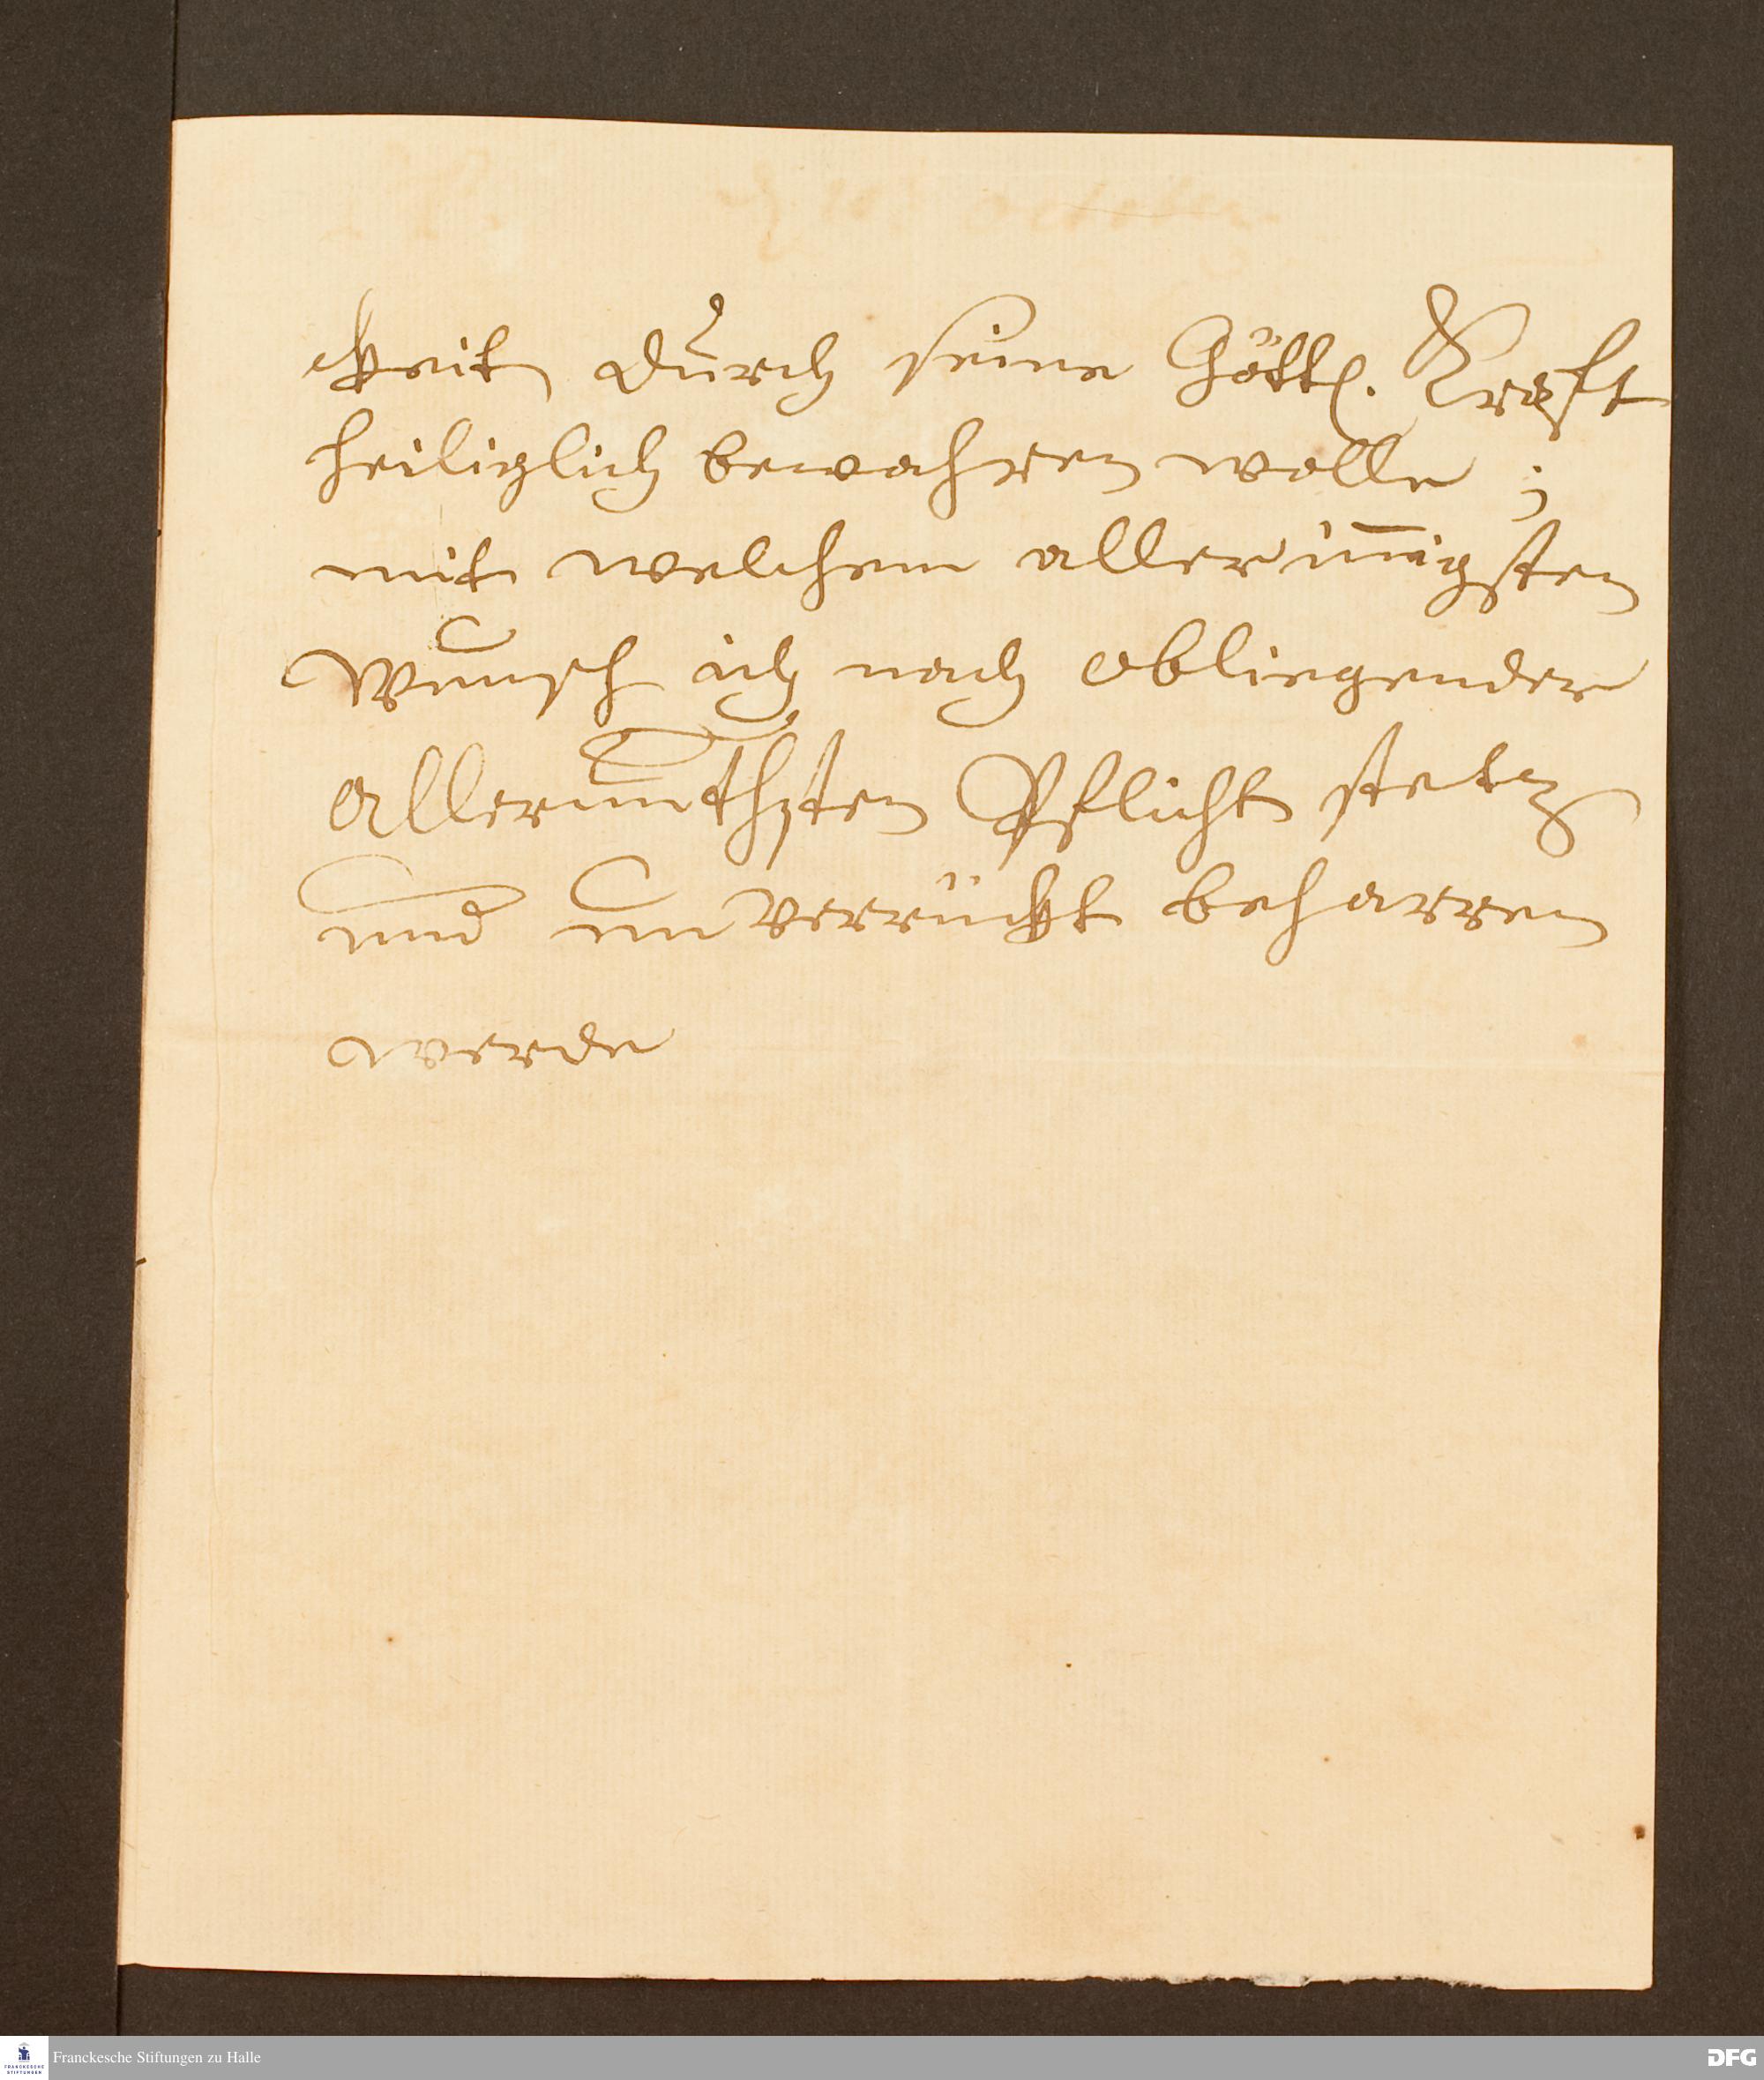 ckeit durch seine Göttl. Krafft
heiliglich bewahren wolle;
mit welchem allerin̅igsten
Wunsch ich nach obliegender
allerunthsten Pflicht stetz
und unverrückt beharren
werde
Franckesche Stiftungen zu Halle
FRANCKESCHE
STIFTUNGEN
DFG